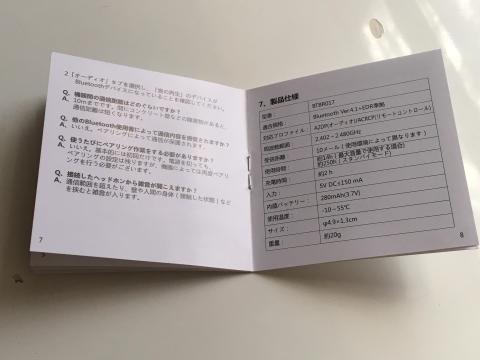 2「オーディオ」タブを選択し、「音の再生」のデバイスが
Bluetoothデバイスになっていることを確認してください。
Q. 機器間の通信距離はどのくらいですか?
A. 10mまでです。間にコンクリート壁などの障害物があると、
通信距離は短くなります。
Q. 他のBluetooth使用者によって通信内容を傍受されますか?
A. いいえ。ペアリングによって通信が保護されます。
Q. 使うたびにペアリング作業をする必要がありますか?
A. いいえ。基本的には初回だけです。電源を切っても、
ペアリングの設定は残りますが、機器によっては再度ペアリ
ングを行う必要がございます。
Q. 接続したヘッドホンから雑音が聞こえますか?
A. 通信範囲を超えたり、壁や人間の身体(接続した状態)など
を挟むと雑音が入ります。
7
7、製品仕様
型番: BTBR017
適合規格: Bluetooth Ver.4.1+EDR準拠
対応プロファイル: A2DP(オーディオ)/ACRCP(リモートコントロール)
周波数範囲: 2.402~2.480GHz
受信距離: 10メール(使用環境によって異なります)
使用時間: 約14h(最大音量で使用する場合)
約250h(スタンバイモード)
充電時間: 約2 h
入力: 5V DC≤150 mA
内蔵バッテリー: 280mAh(3.7V)
使用温度: -10~55℃
サイズ: φ4.9×1.3cm
重量: 約20g
8